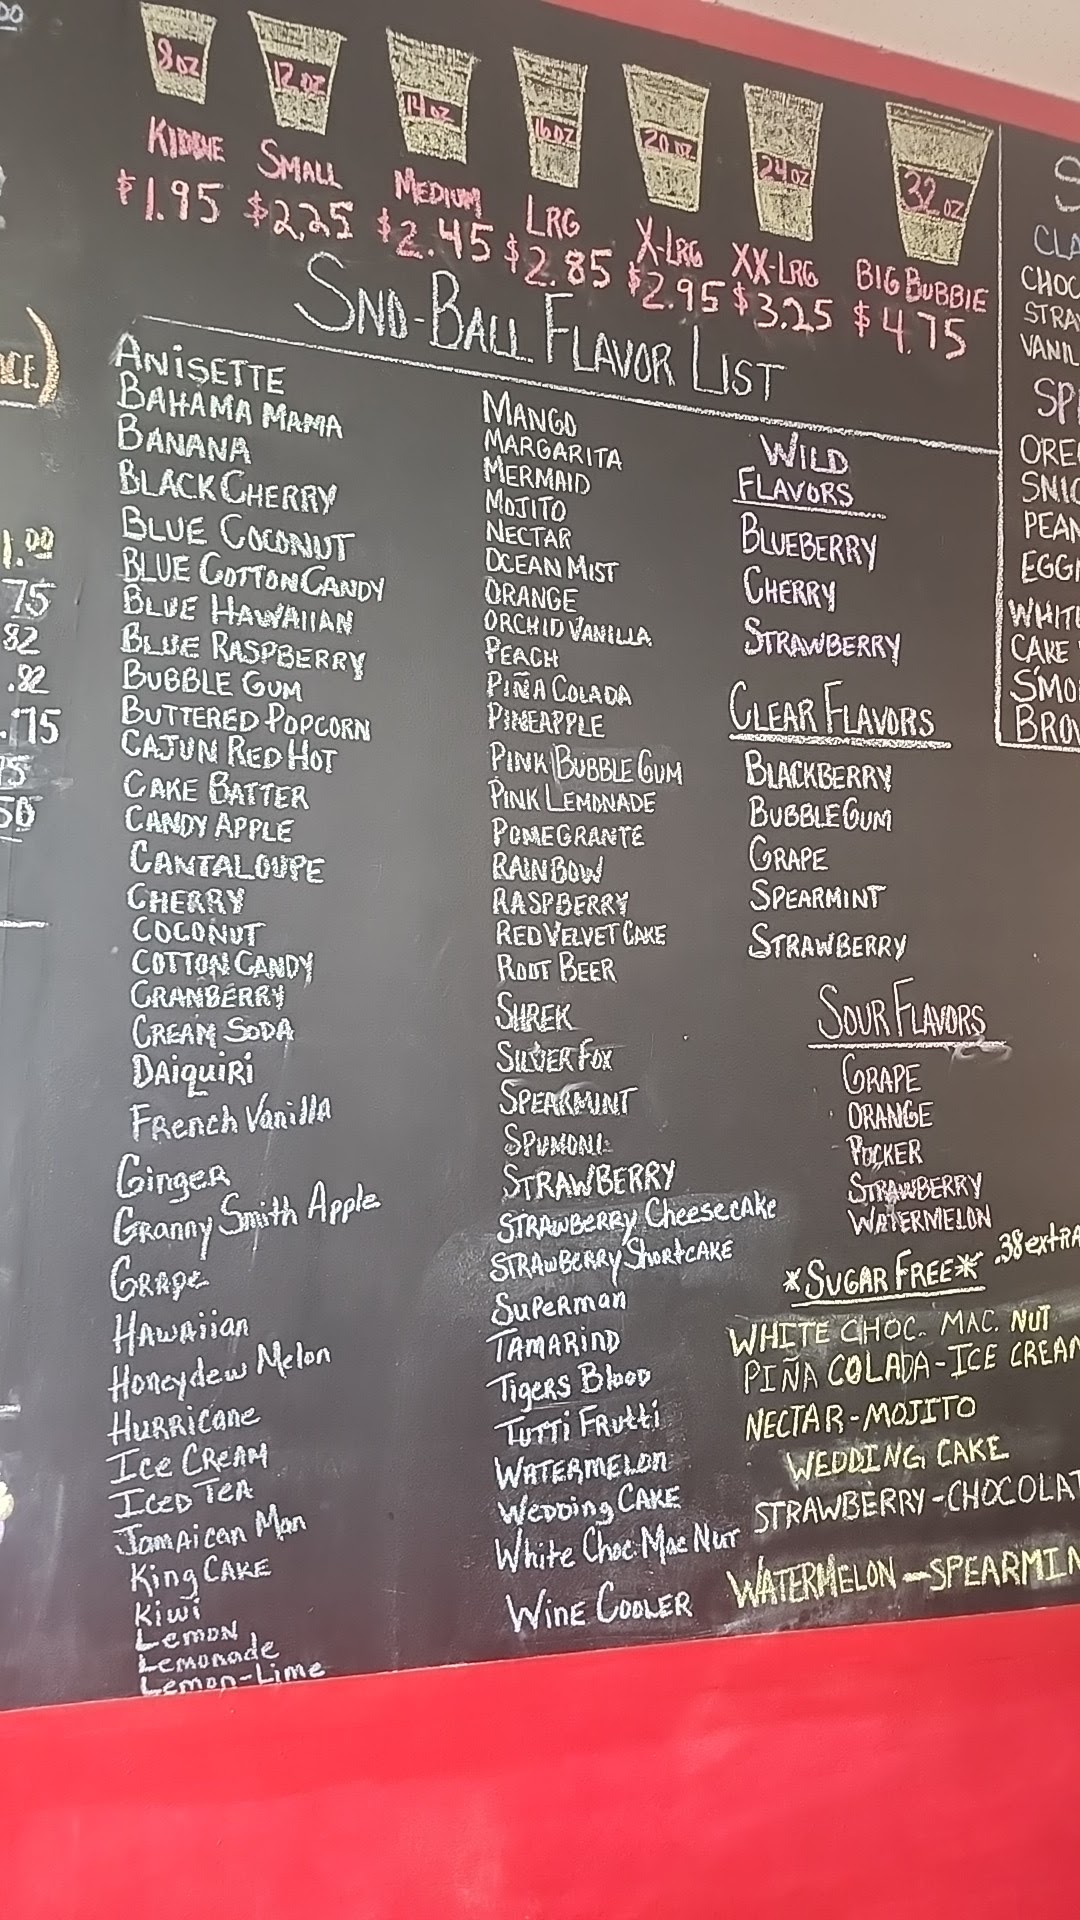 8 OZ
12 OZ
14 OZ
16 OZ
20 OZ
24 OZ
32 OZ
KIDDIE
$1.95
SMALL
$2.25
MEDIUM
$2.45
LRG
$2.85
X-LRG
$2.95
XX-LRG
$3.25
BIG BUBBIE
$4.75
SNO-BALL FLAVOR LIST
ANISETTE
BAHAMA MAMA
BANANA
BLACK CHERRY
BLUE COCONUT
BLUE COTTON CANDY
BLUE HAWAIIAN
BLUE RASPBERRY
BUBBLE GUM
BUTTERED POPCORN
CAJUN RED HOT
CAKE BATTER
CANDY APPLE
CANTALOUPE
CHERRY
COCONUT
COTTON CANDY
CRANBERRY
CREAM SODA
DAiquiRi
FRench VanillA
GingeR
GRanny Smith Apple
GRApe
HAWAiian
Honeydew Melon
HuRRicane
Ice CReAM
Iced TeA
JamAican Man
King CAKE
Kiwi
LeMON
Lemonade
Lemon-Lime
MANGO
MARGARITA
MERMAID
MOJITO
NECTAR
OCEAN MIST
ORANGE
ORCHID VANILLA
PEACH
PIÑA COLADA
PINEAPPLE
PINK BUBBLE GUM
PINK LEMONADE
POMEGRANTE
RAINBOW
RASPBERRY
RED VELVET CAKE
ROOT BEER
SHREK
SILVER FOX
SPEARMINT
SPUMONI
STRAWBERRY
STRAWBERRY CheesecAKe
STRAWBERRY ShortcAKE
SupeRman
TAMARIND
TigeRs Blood
Tutti FRutti
WATERMELON
Wedding CAKE
White Choc Mac Nut
WINE COOLER
WILD
FLAVORS
BLUEBERRY
CHERRY
STRAWBERRY
CLEAR FLAVORS
BLACKBERRY
BUBBLE GUM
GRAPE
SPEARMINT
STRAWBERRY
SOUR FLAVORS
GRAPE
ORANGE
PUCKER
STRAWBERRY
WATERMELON
*SUGAR FREE* .38 extRA
WHITE CHOC. MAC. NUT
PIÑA COLADA-ICE CREAM
NECTAR-MOJITO
WEDDING CAKE
STRAWBERRY-CHOCOLAT
WATERMELON-SPEARMIN
CLA
CHOC
STRA
VANIL
SPE
ORE
SNIC
PEAN
EGG
WHITE
CAKE
S'MO
BROW
1.00
75
82
.82
.75
75
50